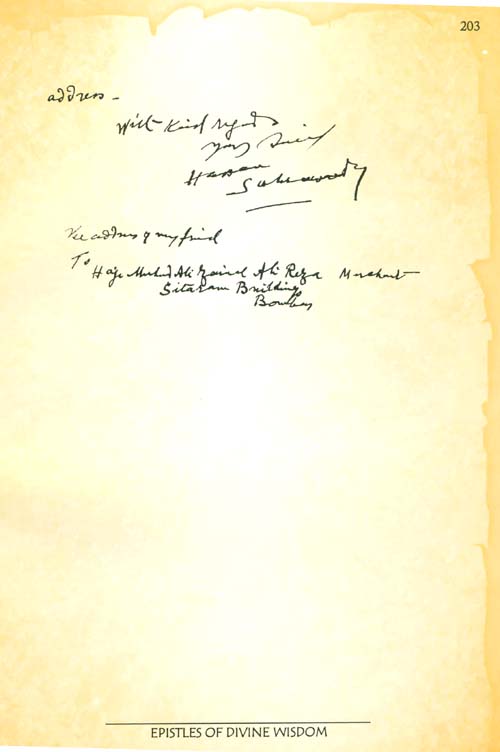 203
address -
With Kind regards
yours Sincerely
Hassan
Suhrawardy
The address of my friend
To
Haji Ali Zainal Ali Reza Merchant
Sitaram Building
Bombay
EPISTLES OF DIVINE WISDOM